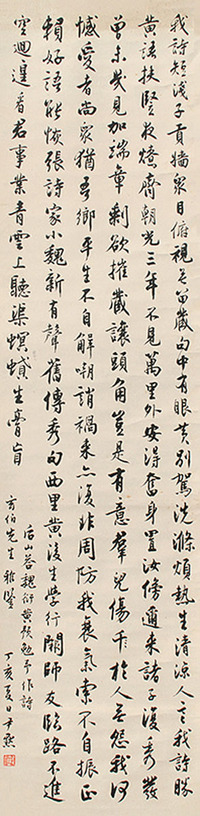 我詩短淺子貢牆衆目俯視無留藏句中有眼黃別駕洗滌煩熱生清涼人言我詩勝
黃語扶豎夜燎齊朝光三年不見萬里外安得奮身置汝傍邇來諸子復秀發
曾未幾見加端章剩欲摧藏讓頭角豈是有意羣兒傷於人無怨我何
憾愛者尚衆猶吾鄉平生不自解嘲誚禍來亦復非周防我衰氣索不自振正
賴好語能恢張詩家小魏新有聲舊傳秀句西里黃後生學行闕師友臨路不進
空迴遑看君事業青雲上聽渠螟蟘生膏肓
后山答魏衍黃預勉予作詩
玄伯先生雅鑒 丁亥夏日尹默